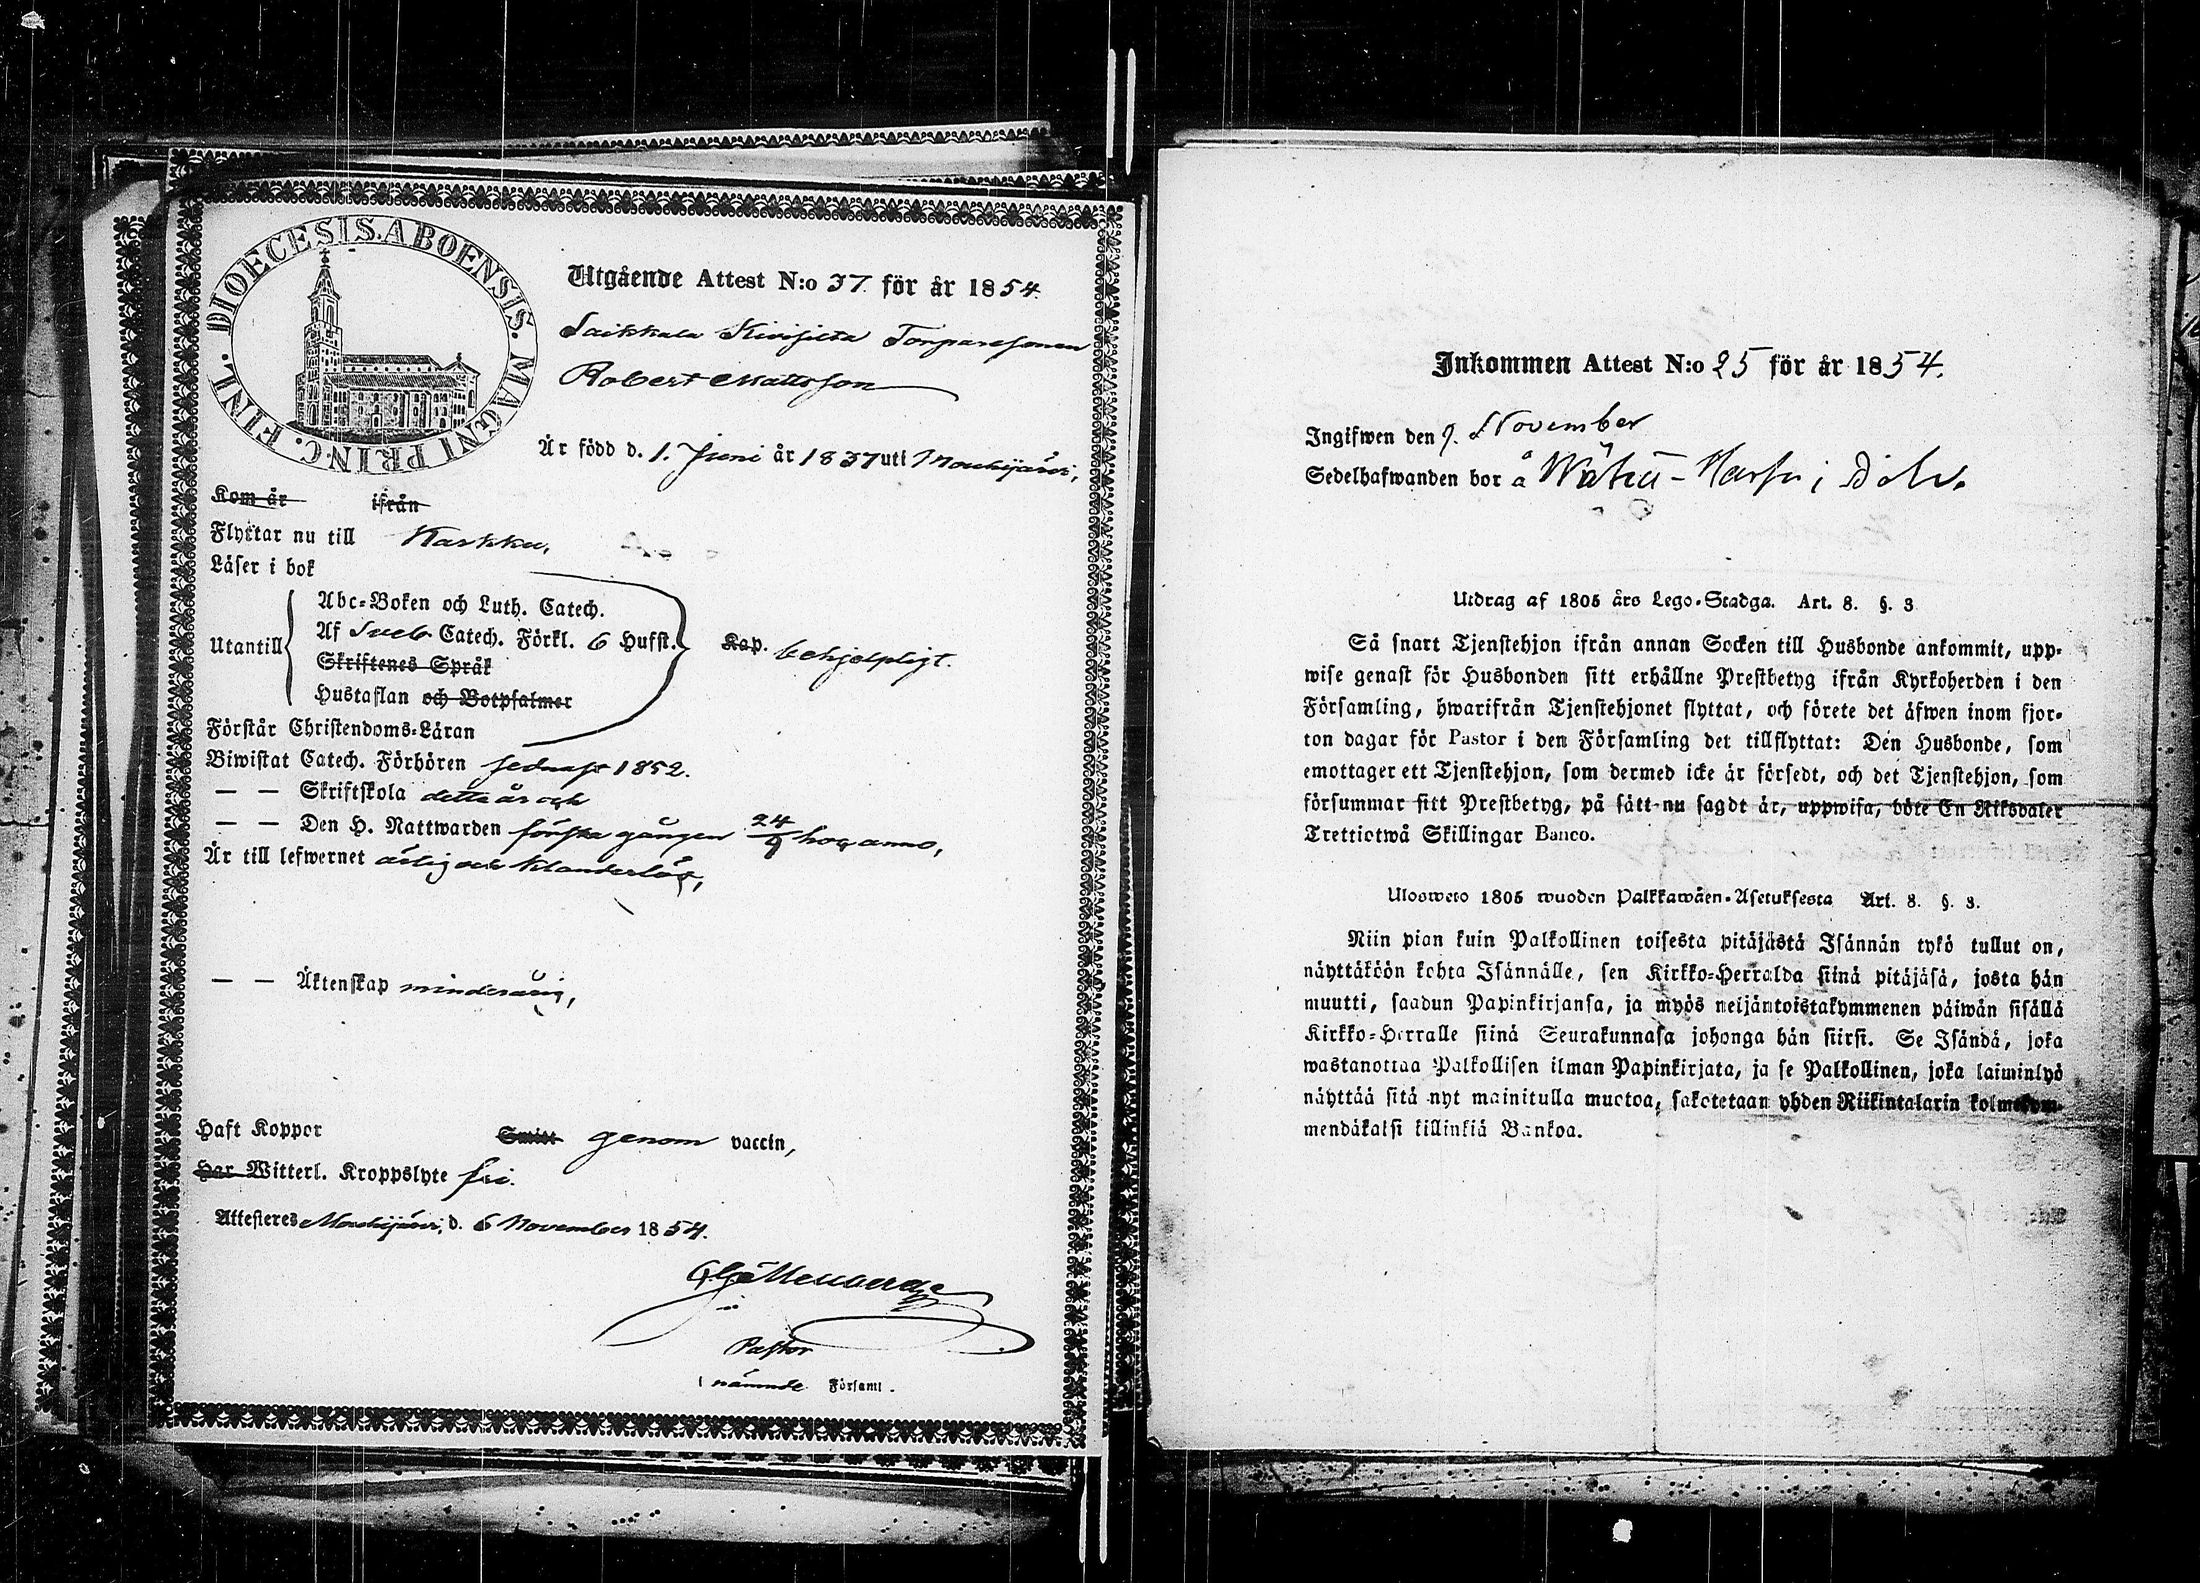 DIOECESIS. ABOENSIS. MAGNI PRINC. FINL.
Utgående Attest N:o 37 för år 1854.
Saikkala Kivisilta Torparesonen
Robert Mattsson
Är född d. 1. Juni år 1837 uti Mouhijärvi,
Kom år ifrån
Flyttar nu till Karkku,
Läser i bok
Utantill
Abc-Boken och Luth. Catech.
Af Sveb. Catech. Förkl. 6 Hufst.
Skriftenes Språk
Hustaflan och Botpsalmer
Kap. behjelpligt.
Förstår Christendoms-Läran
Biwistat Catech. Förhören sednast 1852.
— — Skriftskola detta år och
— — Den H. Nattwarden första gången 24/9 hoc anno,
Är till lefwernet ärlig och klanderlös,
— — Äktenskap minderårig,
Haft Koppor Smitt genom vaccin,
Har Witterl. Kroppslyte fri.
Attesteras Mouhijärvi, d. 6 November 1854.
Pastor
i nämnde Församl.
Inkommen Attest N:o 25 för år 1854.
Ingifwen den 9. November
Sedelhafwanden bor å
Utdrag af 1805 års Lego-Stadga. Art. 8. §. 3
Så snart Tjenstehjon ifrån annan Socken till Husbonde ankommit, upp-
wise genast för Husbonden sitt erhållne Prestbetyg ifrån Kyrkoherden i den
Församling, hwarifrån Tjenstehjonet flyttat, och förete det äfwen inom fjor-
ton dagar för Pastor i den Församling det tillflyttat: Den Husbonde, som
emottager ett Tjenstehjon, som dermed icke är försedt, och det Tjenstehjon, som
försummar sitt Prestbetyg, på sätt nu sagdt är, uppwisa, böte En Riksdaler
Trettiotwå Skillingar Banco.
Ulosweto 1805 wuoden Palkkawäen-Asetuksesta Art. 8. §. 3.
Niin pian kuin Palkollinen toisesta pitäjästä Isännän tykö tullut on,
näyttäköön kohta Isännälle, sen Kirkko-Herralda siinä pitäjäsä, josta hän
muutti, saadun Papinkirjansa, ja myös neljäntoistakymmenen päiwän sisällä
Kirkko-Herralle siinä Seurakunnasa johonga hän siirsi. Se Isändä, joka
wastanottaa Palkollisen ilman Papinkirjata, ja se Palkollinen, joka laiminlyö
näyttää sitä nyt mainitulla muotoa, sakotetaan yhden Riikintalarin kolmekym-
mendäkaksi killinkiä Bankoa.